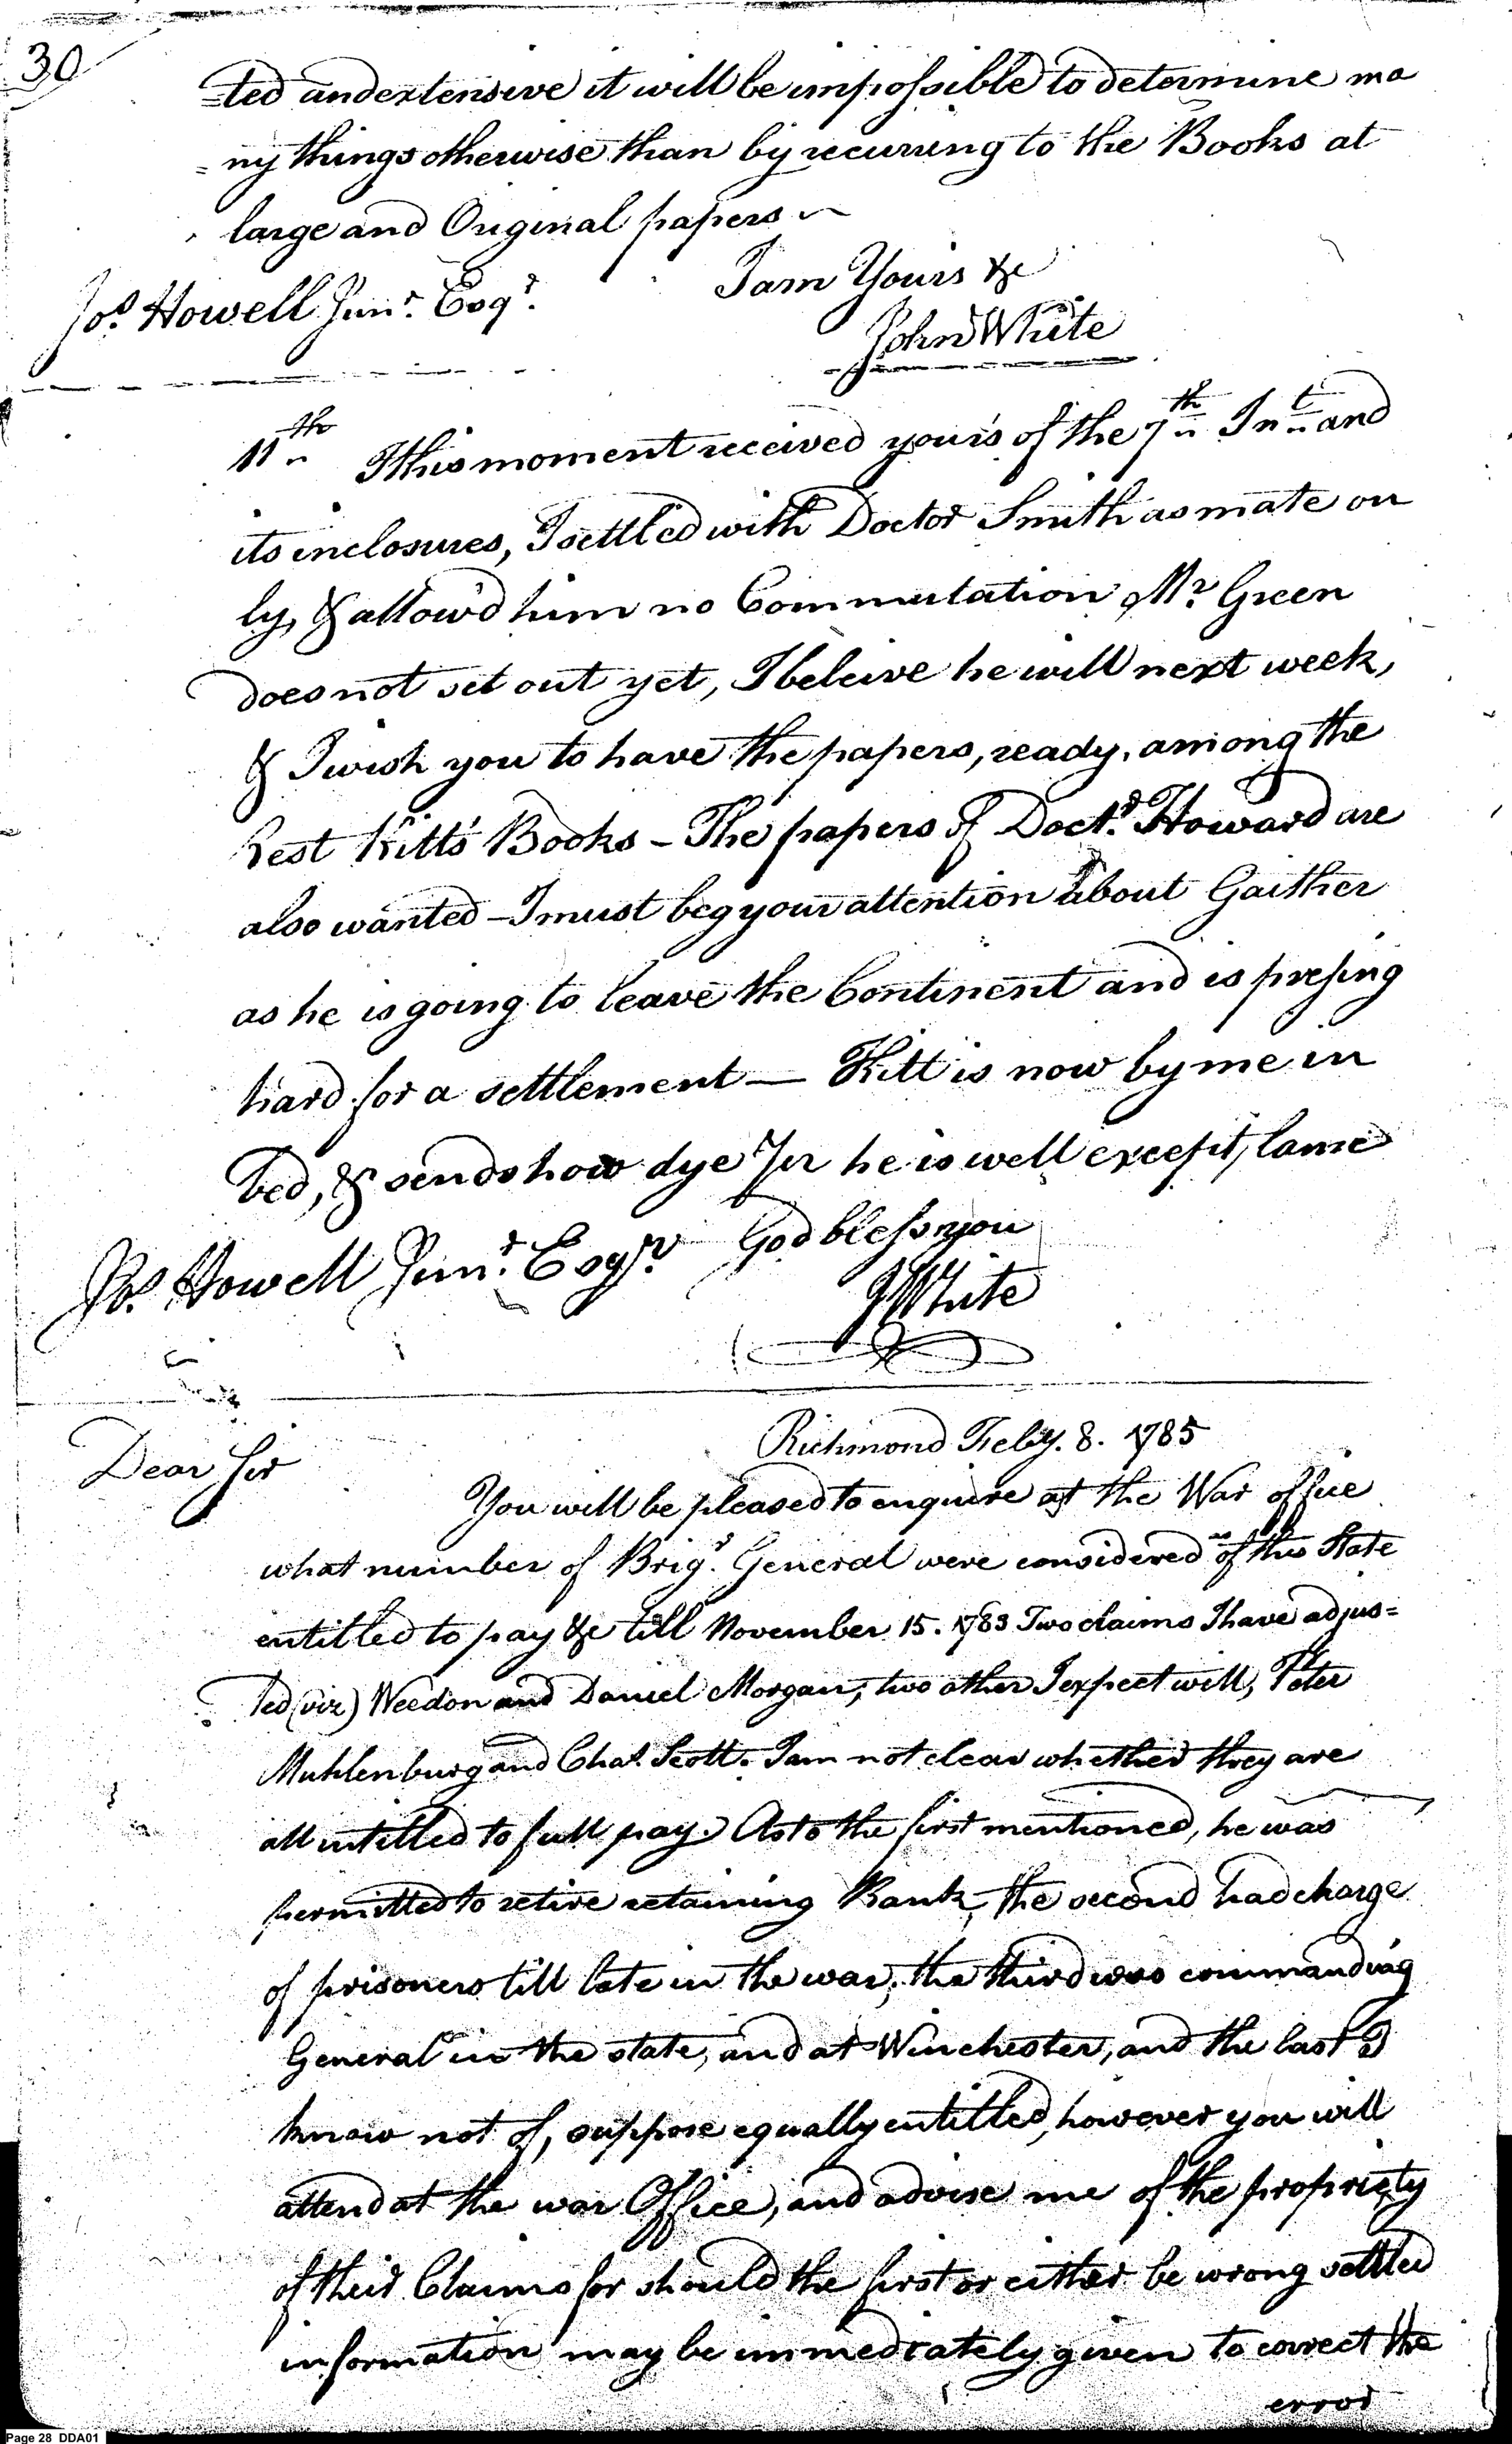 30
=ted and extensive it will be impossible to determine ma
=ny things otherwise than by recurring to the Books at
large and Original papers ~
I am Yours &c
Jos. Howell Junr. Esqr.
John White
11th I this moment received your's of the 7th Int. and
its inclosures, I settled with Doctor Smith as mate on
ly, & allow'd him no Commutation, Mr. Green
does not set out yet, I beleive he will next week,
& I wish you to have the papers, ready, among the
Rest Kitt's Books - The papers of Doctr. Howard are
also wanted - I must beg your attention about Gaither
as he is going to leave the Continent and is pressing
hard for a settlement — Kitt is now by me in
bed, & sends how dye for he is well except, lame
God bless you
Jos. Howell Junr. Esqr.
J White
Richmond Feby. 8. 1785
Dear Sir
You will be pleased to enquire at the War office
what number of Brigr. General were considered as of this State
entitled to pay &c till November 15. 1783 Two claims I have adjus=
ted (viz) Weedon and Daniel Morgan, two other I expect will, Peter
Muhlenburg and Chas. Scott. I am not clear whether they are
all intitled to full pay. As to the first mentioned, he was
permitted to retire retaining Rank, the second had charge
of prisoners till late in the war, the third was commanding
General in the state, and at Winchester, and the last I
know not of, suppose equally entitled, however you will
attend at the war Office, and advise me of the propriety
of their Claims for should the first or either be wrong settled
information may be immediately given to correct the
error
Page 28 DDA01